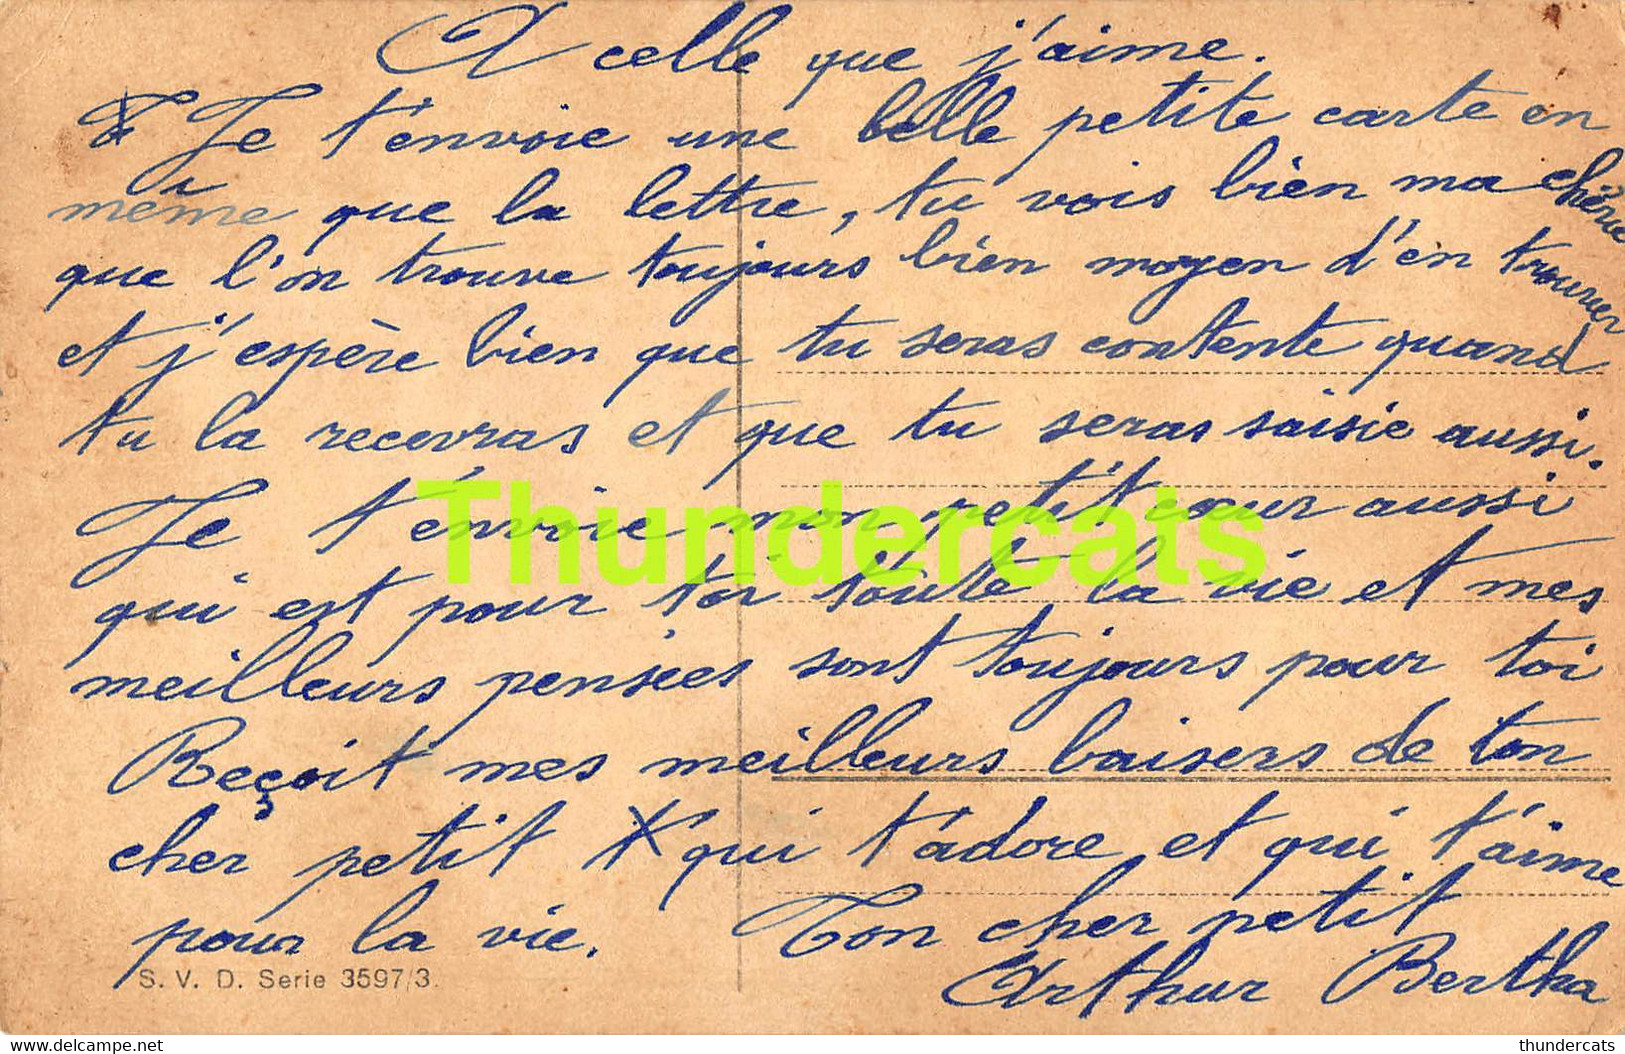 A celle que j'aime.
Je t'envoie une belle petite carte en
même que la lettre, tu vois bien ma chérie
que l'on trouve toujours bien moyen d'en trouver
et j'espère bien que tu seras contente quand
tu la recevras et que tu seras saisie aussi.
Je t'envoie mon petit cœur aussi
qui est pour toi toute la vie et mes
meilleurs pensées sont toujours pour toi
Reçoit mes meilleurs baisers de ton
cher petit X qui t'adore et qui t'aime
pour la vie. Ton cher petit
Arthur Bertha
S. V. D. Serie 3597/3.
Thundercats
www.delcampe.net
thundercats